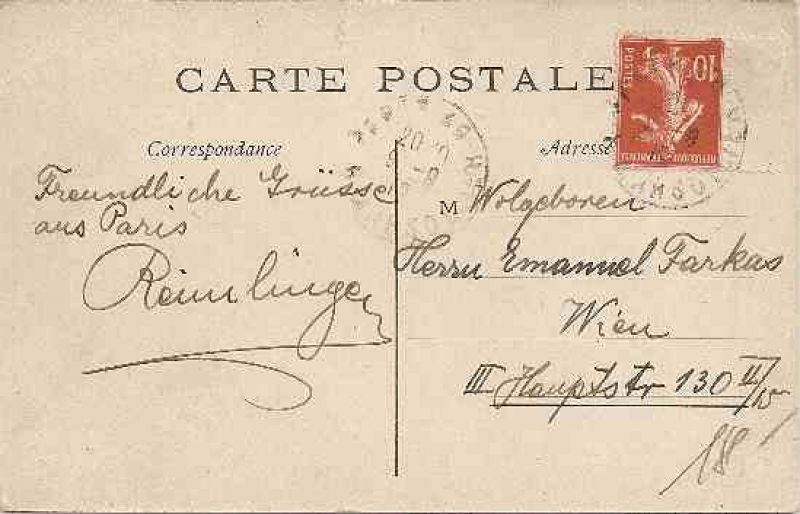 CARTE POSTALE
Correspondance
Freundliche Grüsse
aus Paris
Reimlinger
Adresse
M Wolgeboren
Herrn Emanuel Farkas
Wien
III Hauptstr 130 II/15
18
10c
POSTES
REPUBLIQUE FRANCAISE